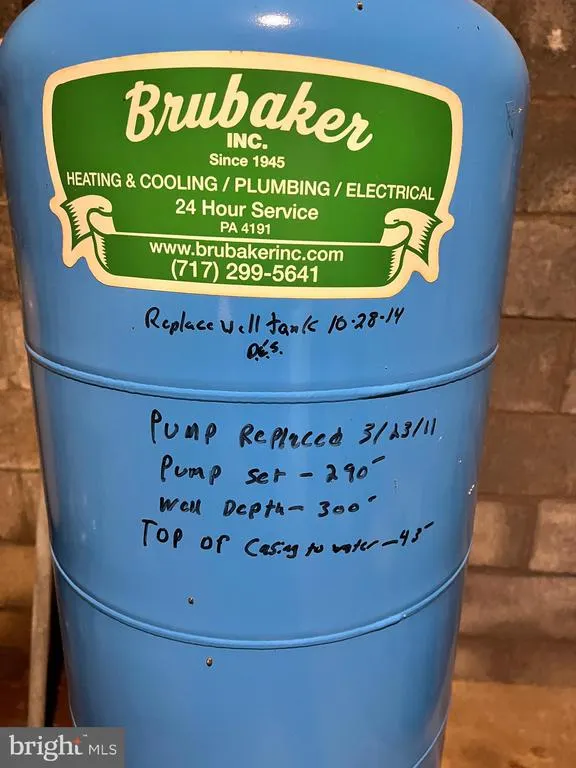 Brubaker
INC.
Since 1945
HEATING & COOLING / PLUMBING / ELECTRICAL
24 Hour Service
PA 4191
www.brubakerinc.com
(717) 299-5641
Replace Well tank 10-28-14
D.E.S.
PUMP REPLACED 3/23/11
Pump set - 290'
Well Depth - 300'
TOP OF Casing to water - 43'
bright MLS